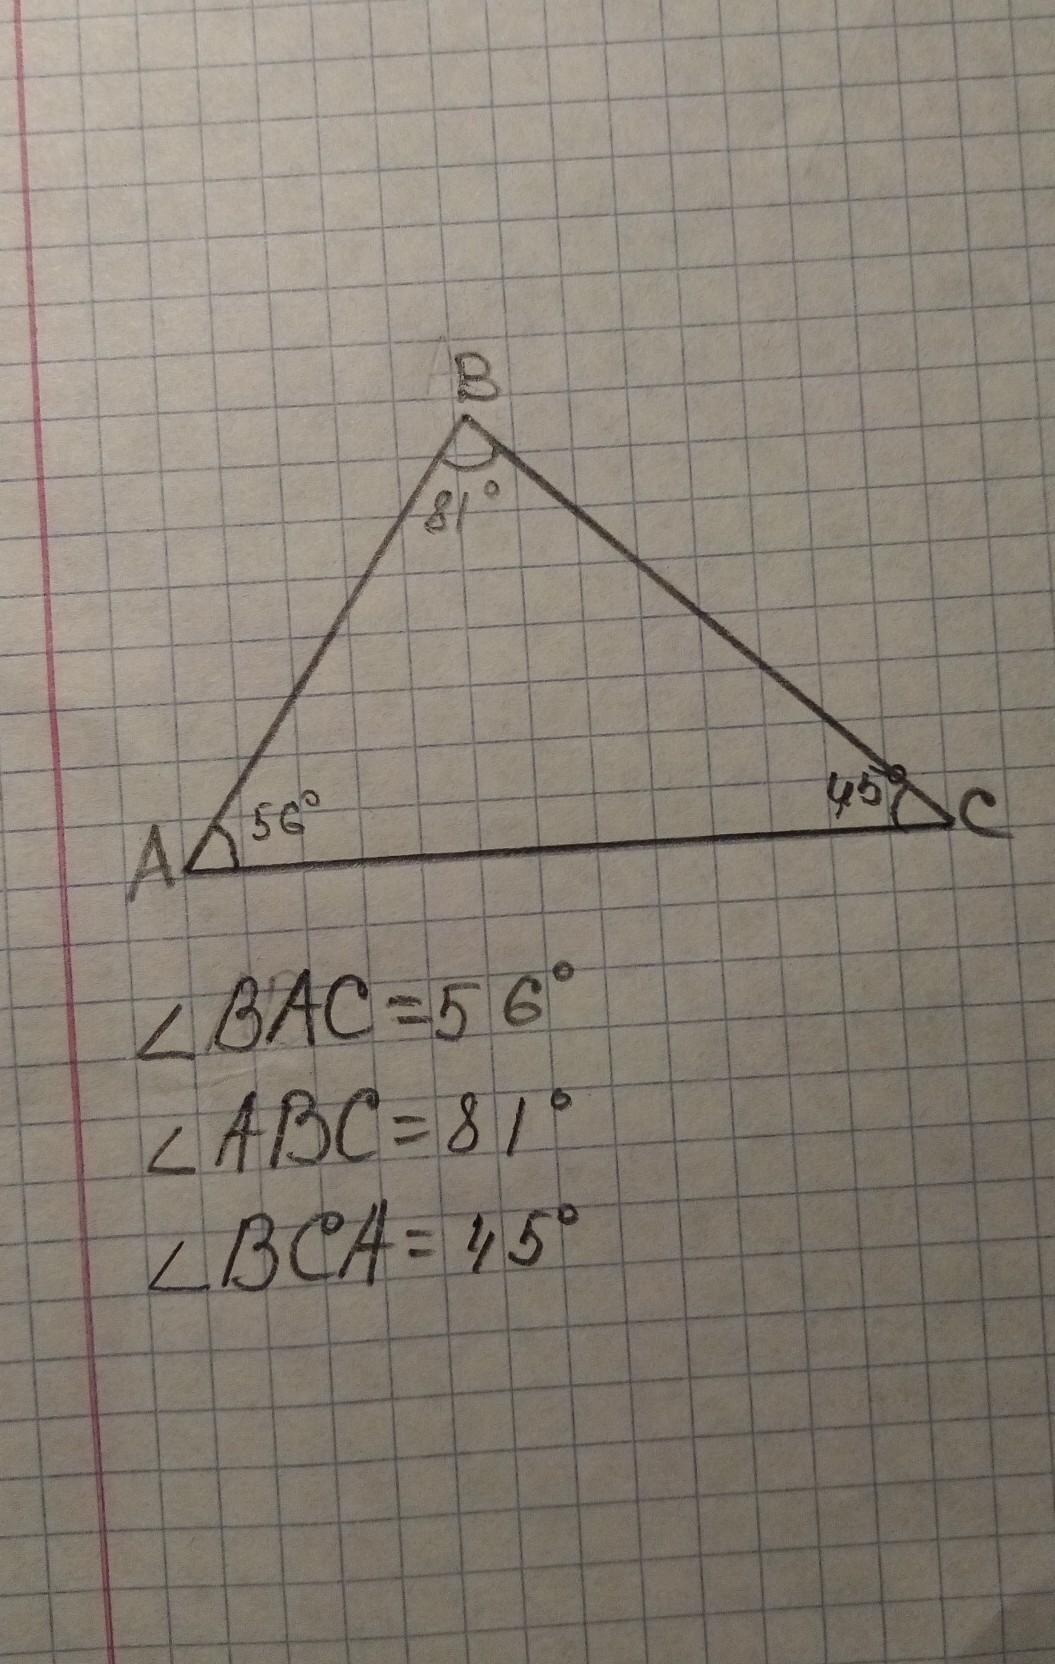 B
81°
56°
45°
A
C
∠BAC=56°
∠ABC=81°
∠BCA=45°